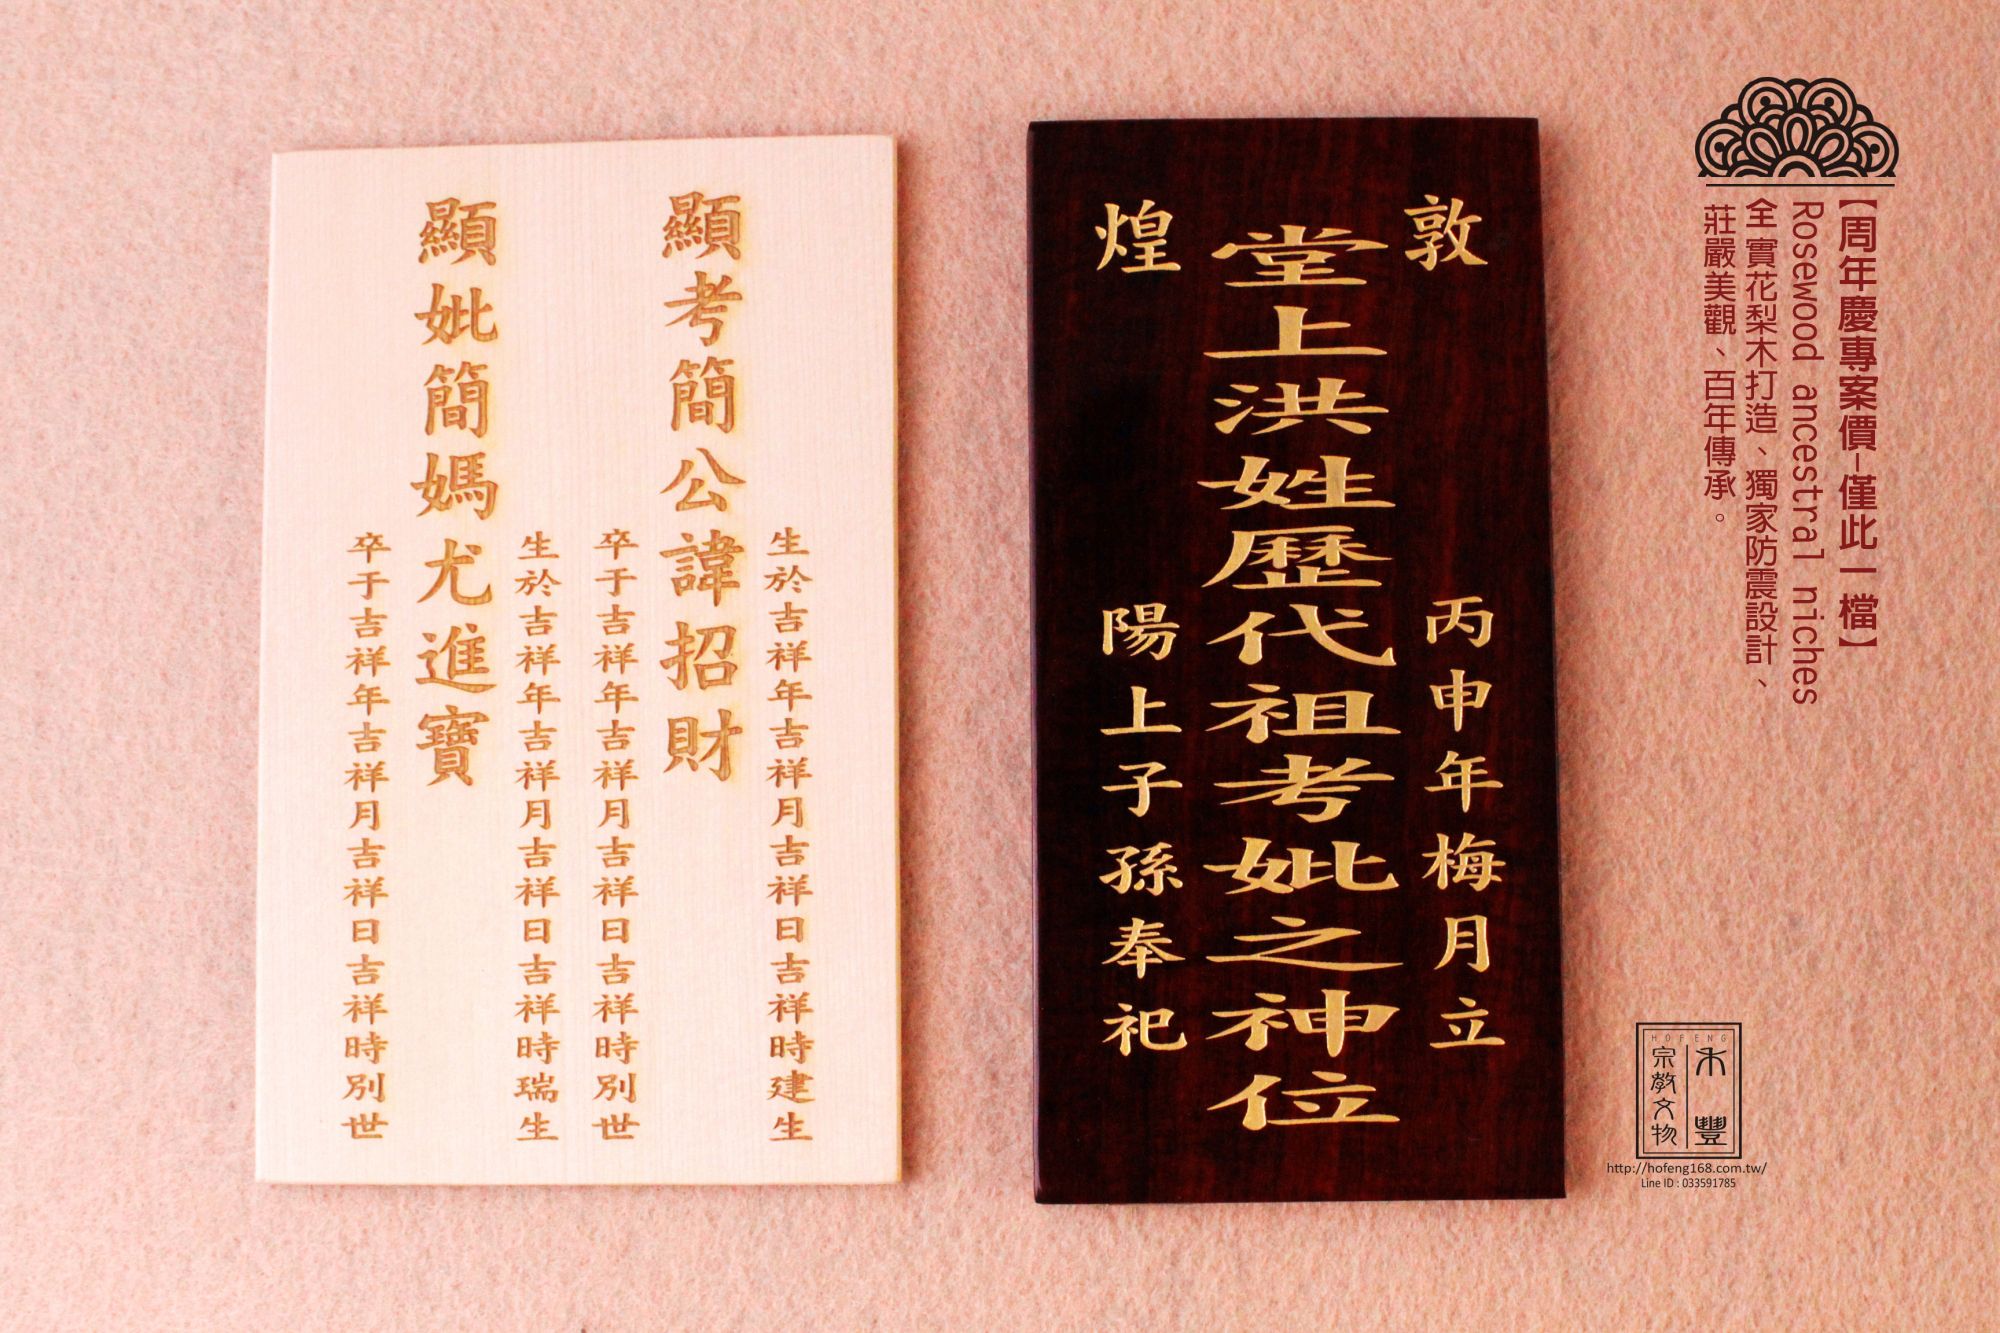 顯考簡公諱招財
生於吉祥年吉祥月吉祥日吉祥時建生
卒于吉祥年吉祥月吉祥日吉祥時別世
顯妣簡媽尤進寶
生於吉祥年吉祥月吉祥日吉祥時瑞生
卒于吉祥年吉祥月吉祥日吉祥時別世
敦煌
堂上洪姓歷代祖考妣之神位
丙申年梅月立
陽上子孫奉祀
【周年慶專案價-僅此一檔】
Rosewood ancestral niches
全實花梨木打造、獨家防震設計、
莊嚴美觀、百年傳承。
HOFENG
禾豐
宗教文物
http://hofeng168.com.tw/
Line ID : 033591785